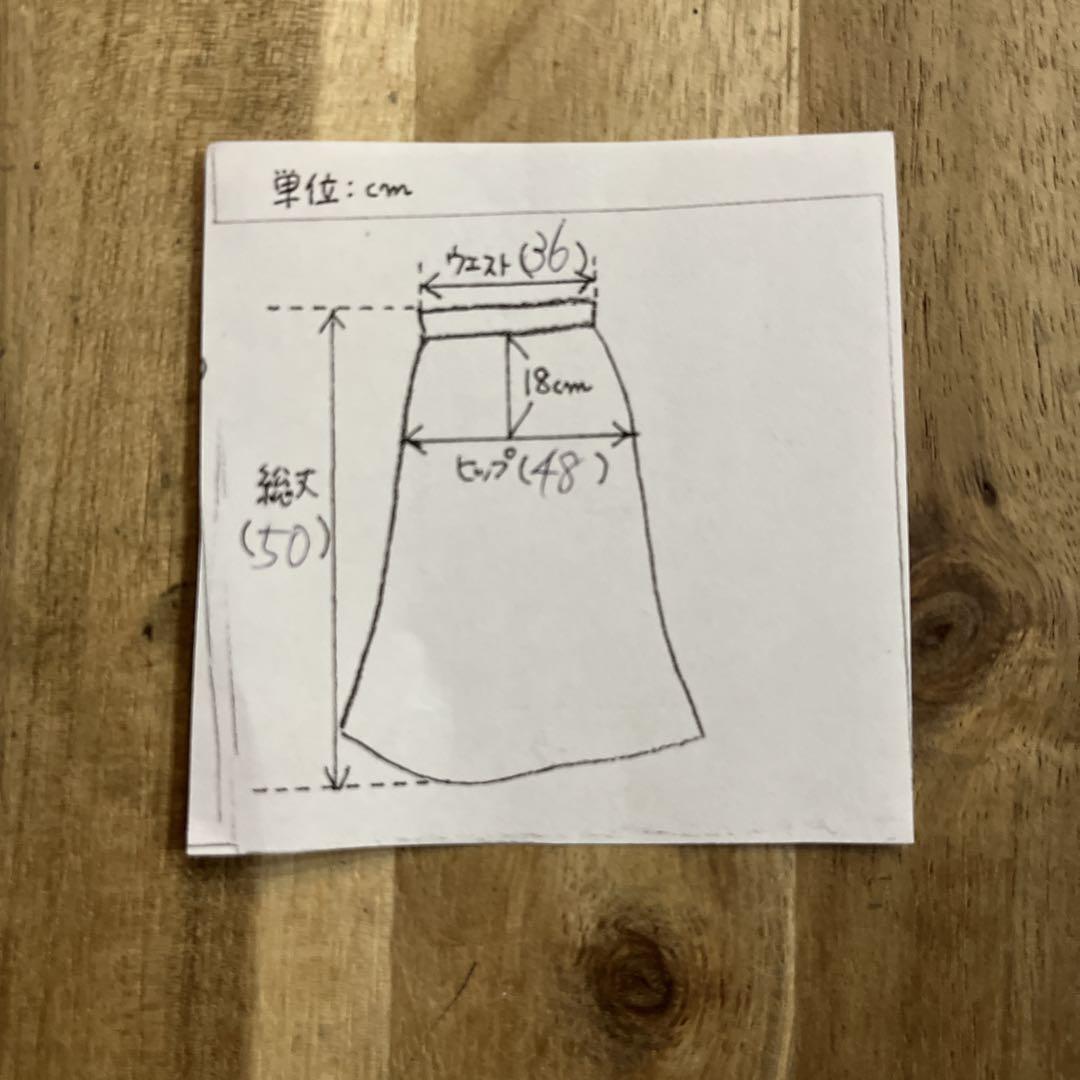 単位:cm
ウエスト(36)
18cm
ヒップ(48)
総丈
(50)